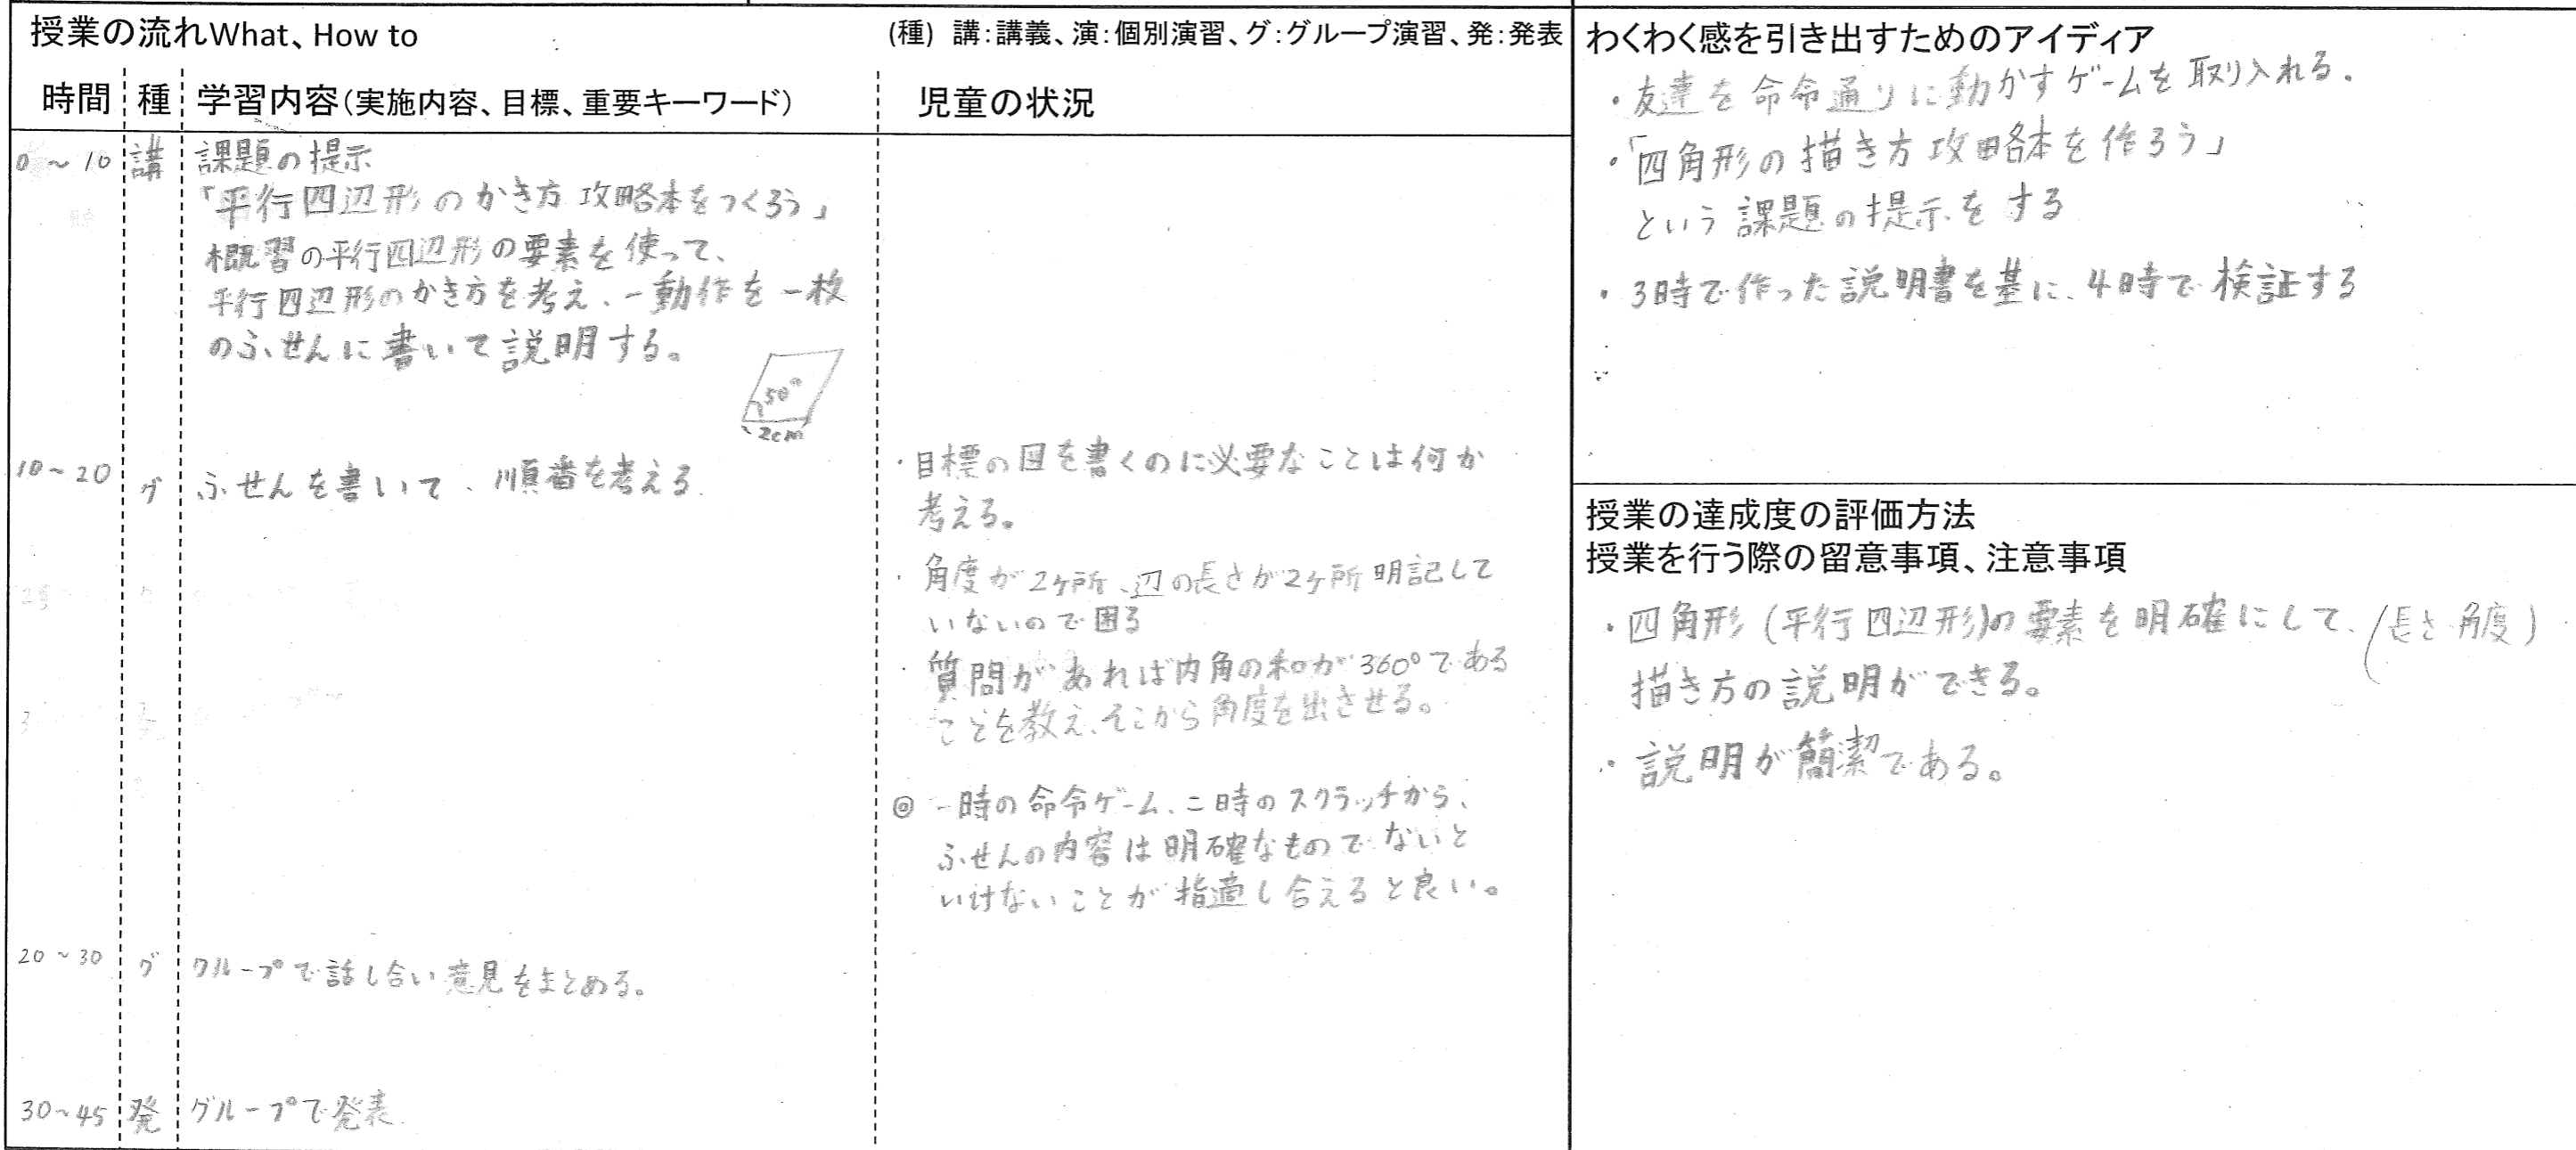 授業の流れWhat、How to
(種) 講:講義、演:個別演習、グ:グループ演習、発:発表
時間 種 学習内容(実施内容、目標、重要キーワード)
児童の状況
0～10 講 課題の提示
「平行四辺形のかき方攻略本をつくろう」
概習の平行四辺形の要素を使って、
平行四辺形のかき方を考え、一動作を一枚
のふせんに書いて説明する。
50°
2cm
10～20 グ ふせんを書いて、順番を考える。
・目標の図を書くのに必要なことは何か
考える。
・角度が2ヶ所、辺の長さが2ヶ所明記して
いないので困る
・質問があれば内角の和が360°である
ことを教え、そこから角度を出させる。
◎ 一時の命令ゲーム、二時のスクラッチから、
ふせんの内容は明確なものでないと
いけないことが指適し合えると良い。
20～30 グ グループで話し合い意見をまとめる。
30～45 発 グループで発表
わくわく感を引き出すためのアイディア
・友達を命令通りに動かすゲームを取り入れる。
・「四角形の描き方攻略本を作ろう」
という課題の提示をする
・3時で作った説明書を基に、4時で検証する
授業の達成度の評価方法
授業を行う際の留意事項、注意事項
・四角形(平行四辺形)の要素を明確にして、(長さ 角度)
描き方の説明ができる。
・説明が簡潔である。